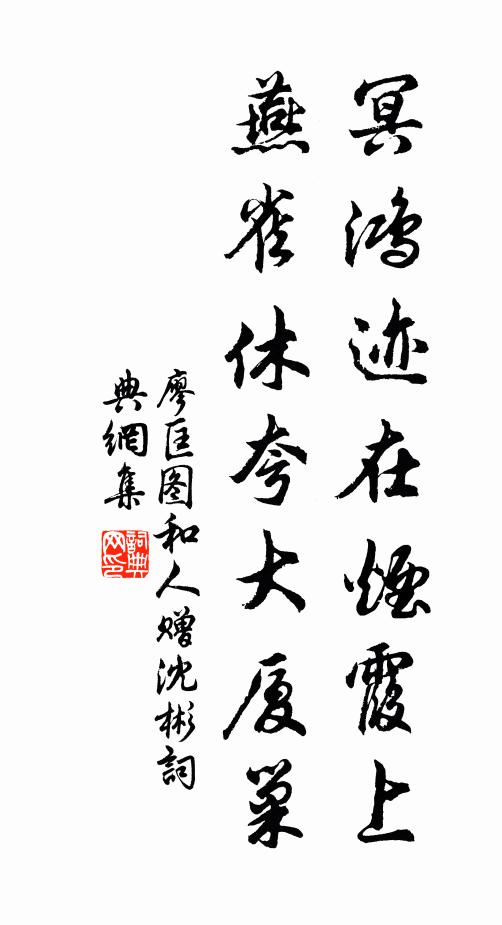 冥鸿迹在烟霞上
燕雀休夸大厦巢
廖匡图和人赠沈彬詞
典網集
詞典
网印